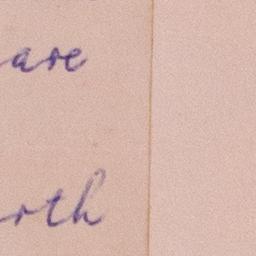 are
rth